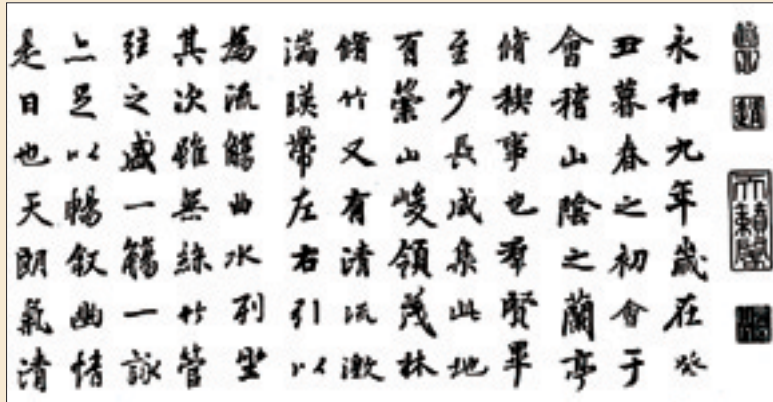 永和九年歲在癸
丑暮春之初會于
會稽山陰之蘭亭
脩稧事也羣賢畢
至少長咸集此地
有崇山峻領茂林
脩竹又有清流激
湍暎帶左右引以
為流觴曲水列坐
其次雖無絲竹管
弦之盛一觴一詠
亦足以暢叙幽情
是日也天朗氣清